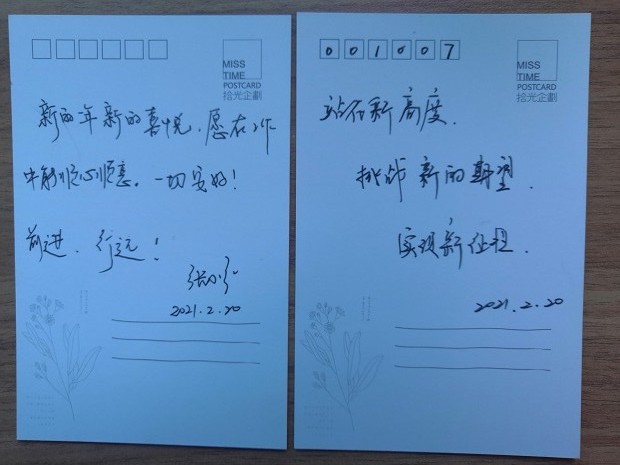 MISS
TIME
POSTCARD
拾光企劃
新的年新的喜悦、愿在工作
中能顺心顺意。一切安好！
前进、行远！
2021.2.20
001007
MISS
TIME
POSTCARD
拾光企劃
站在新高度.
挑战新的期望.
实现新征程.
2021.2.20